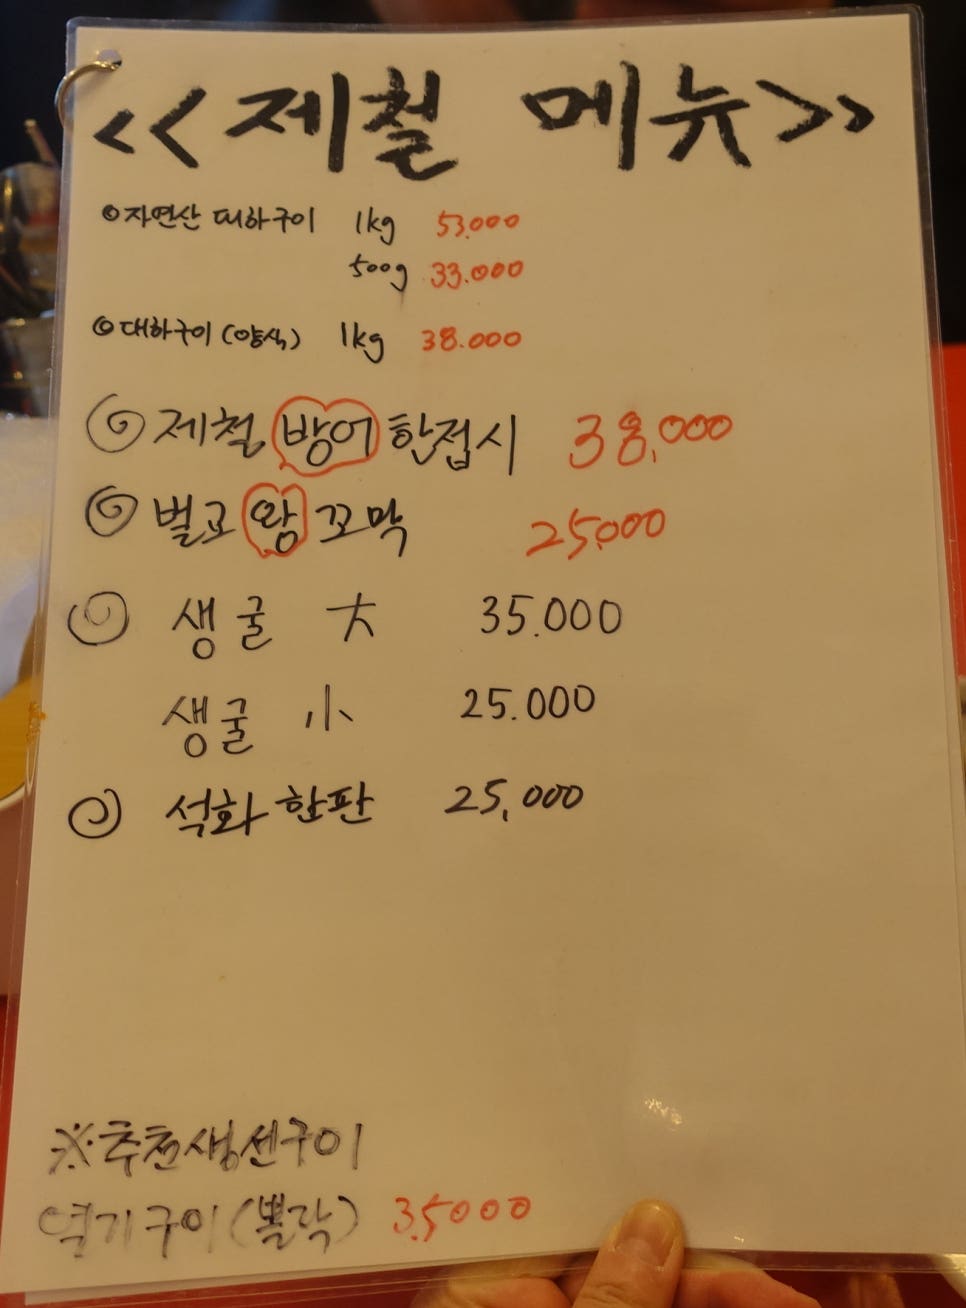 <<제철 메뉴>>
자연산 대하구이 1kg 53.000
500g 33.000
대하구이(양식) 1kg 38.000
제철 방어 한접시 38,000
벌교 왕 꼬막 25,000
생굴 大 35.000
생굴 小 25.000
석화 한판 25,000
※추천생선구이
열기구이(뽈락) 35000